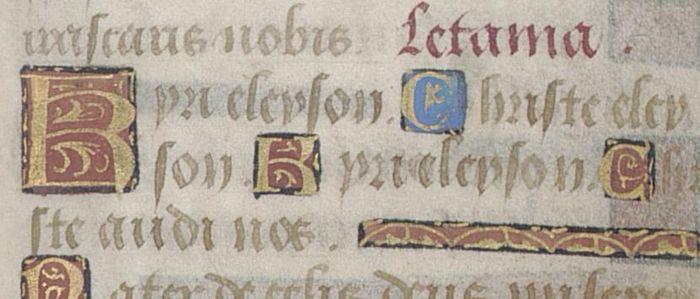 miscaris nobis. Letania.
Kyri eleyson. Christe eley
son. Kyri eleyson. Chri
ste audi nos.
Pater de celis deus misere